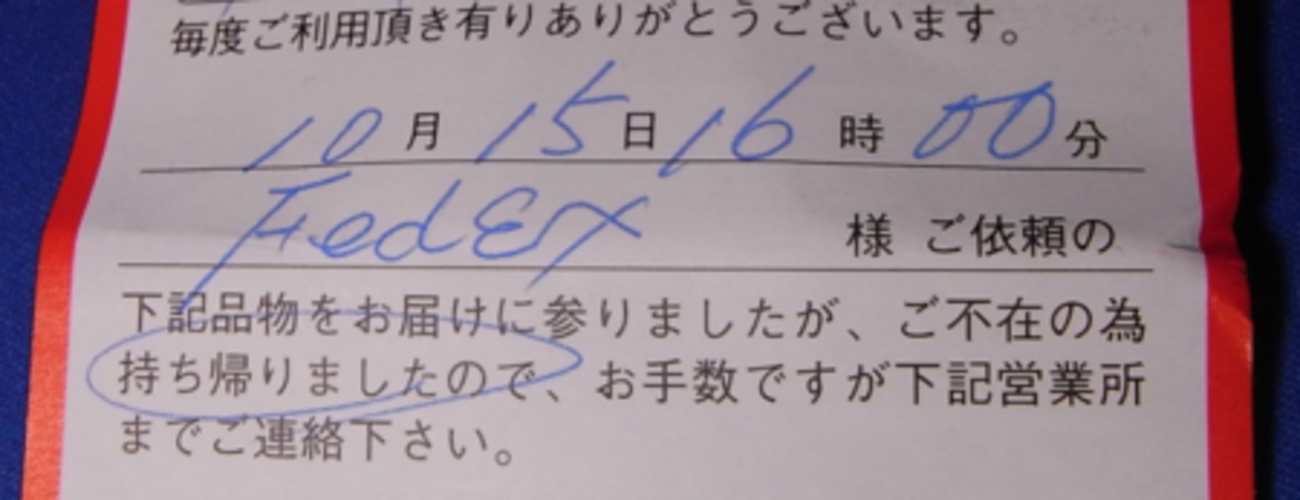 毎度ご利用頂き有りありがとうございます。
10月15日16時00分
FedEx 様 ご依頼の
下記品物をお届けに参りましたが、ご不在の為
持ち帰りましたので、お手数ですが下記営業所
までご連絡下さい。